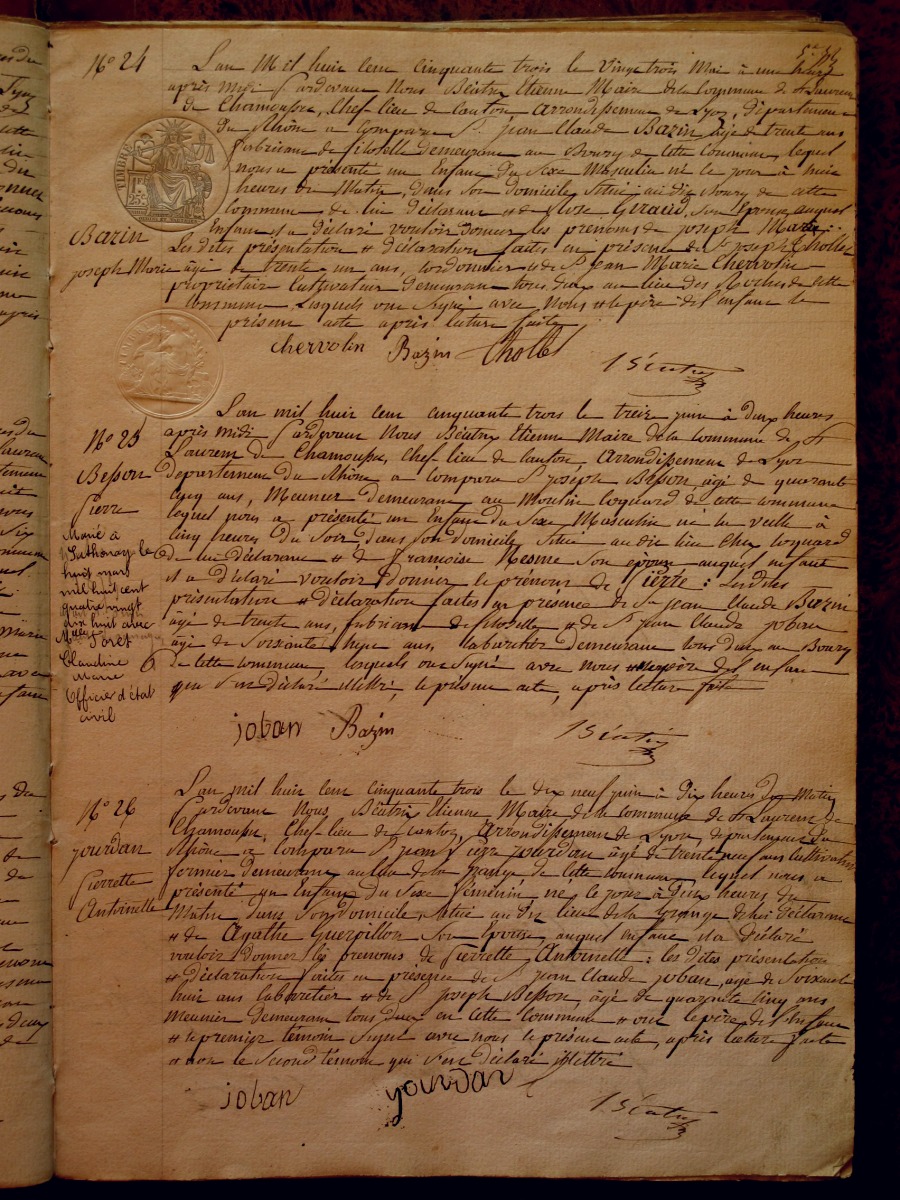 N° 24
L'an Mil huit cent cinquante trois le vingt trois Mai à une heure
après midi Pardevant Nous Béatrix Etienne Maire de la Commune de St Laurent
de Chamousset, Chef lieu de Canton, arrondissement de Lyon, département
du Rhône a Comparu St jean Claude Bazin âgé de trente ans
fabricant de filoselle demeurant au Bourg de Cette Commune, lequel
nous a présenté un Enfant du Sexe Masculin né le jour à huit
heures du Matin, dans Son domicile Situé au dit Bourg de cette
Commune de lui déclarant & de Giraud, Son Epouse, auquel
Enfant il a déclaré vouloir donner les prénoms de joseph Marie :
Les dites présentation & déclaration faites en présence de St joseph Chollet
âgé de trente un ans, cordonnier & de St jean Marie Chervolin
propriétaire Cultivateur demeurant tous deux au lieu des de Cette
Commune Lesquels ont Signé avec Nous & le père de l'enfant le
présent acte après lecture faite
Bazin
joseph Marie
TIMBRE
1 F.
25 c.
chervolin Bazin Chollet
Béatrix
N° 25
L'an mil huit cent cinquante trois le treize juin à deux heures
après midi Pardevant Nous Béatrix Etienne Maire de la Commune de St
Laurent de Chamousset, Chef lieu de Canton, Arrondissement de Lyon
département du Rhône a comparu St joseph Besson, âgé de quarante
cinq ans, Meunier demeurant au Moulin Coquard de cette commune
lequel nous a présenté un Enfant du Sexe Masculin né la veille à
cinq heures du Soir dans son domicile Situé au dit lieu Chez Coquard
de lui déclarant & de françoise Mesme Son épouse auquel enfant
il a déclaré vouloir donner le prénom de Pierre : Lesdites
présentation & déclaration faites en présence de St jean Claude Bazin
âgé de trente ans, fabricant de filoselle & de St jean Claude joban
âgé de Soixante huit ans, Cabaretier demeurant tous deux au Bourg
de Cette commune, lesquels ont Signé avec nous de l'enfant
qui S'est déclaré illettré, le présent acte, après lecture faite
Besson
Pierre
Marié à
Sathonay le
huit mars
mil huit cent
quatre vingt
dix huit avec
Melle Foret
Claudine
Marie
Officier d'état
civil
joban Bazin
Béatrix
N° 26
L'an mil huit cent cinquante trois le dix neuf juin à dix heures du Matin
Pardevant Nous Béatrix Etienne Maire de la commune de St Laurent de
Chamousset, Chef lieu de Canton, Arrondissement de Lyon, département du
Rhône a Comparu St jean Pierre jourdan âgé de trente neuf ans Cultivateur
fermier demeurant au lieu de la grange de Cette commune, lequel nous a
présenté un Enfant du Sexe féminin, né le jour à deux heures du
Matin dans Son domicile, Situé au dit lieu de la Grange de lui déclarant
& de Agathe Guerpillon Son Epouse, auquel enfant il a déclaré
vouloir donner les prénoms de Pierrette Antoinette : les dites présentation
& déclaration faites en présence de St jean Claude joban, âgé de Soixante
huit ans Cabaretier & de St joseph Besson, âgé de quarante cinq ans
Meunier demeurant tous deux en cette Commune & ont le père de l'Enfant
& le premier témoin Signé avec nous le présent acte, après lecture faite
& non le Second témoin qui S'est déclaré illettré
jourdan
Pierrette
Antoinette
joban jourdan
Béatrix